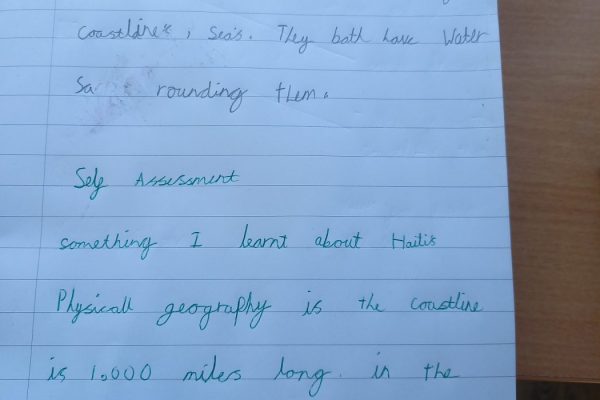 coastline, Sea's. They both have Water
Sa rounding them.
Self Assessment
something I learnt about Haitis
Physicall geography is the coastline
is 1,000 miles long. in the